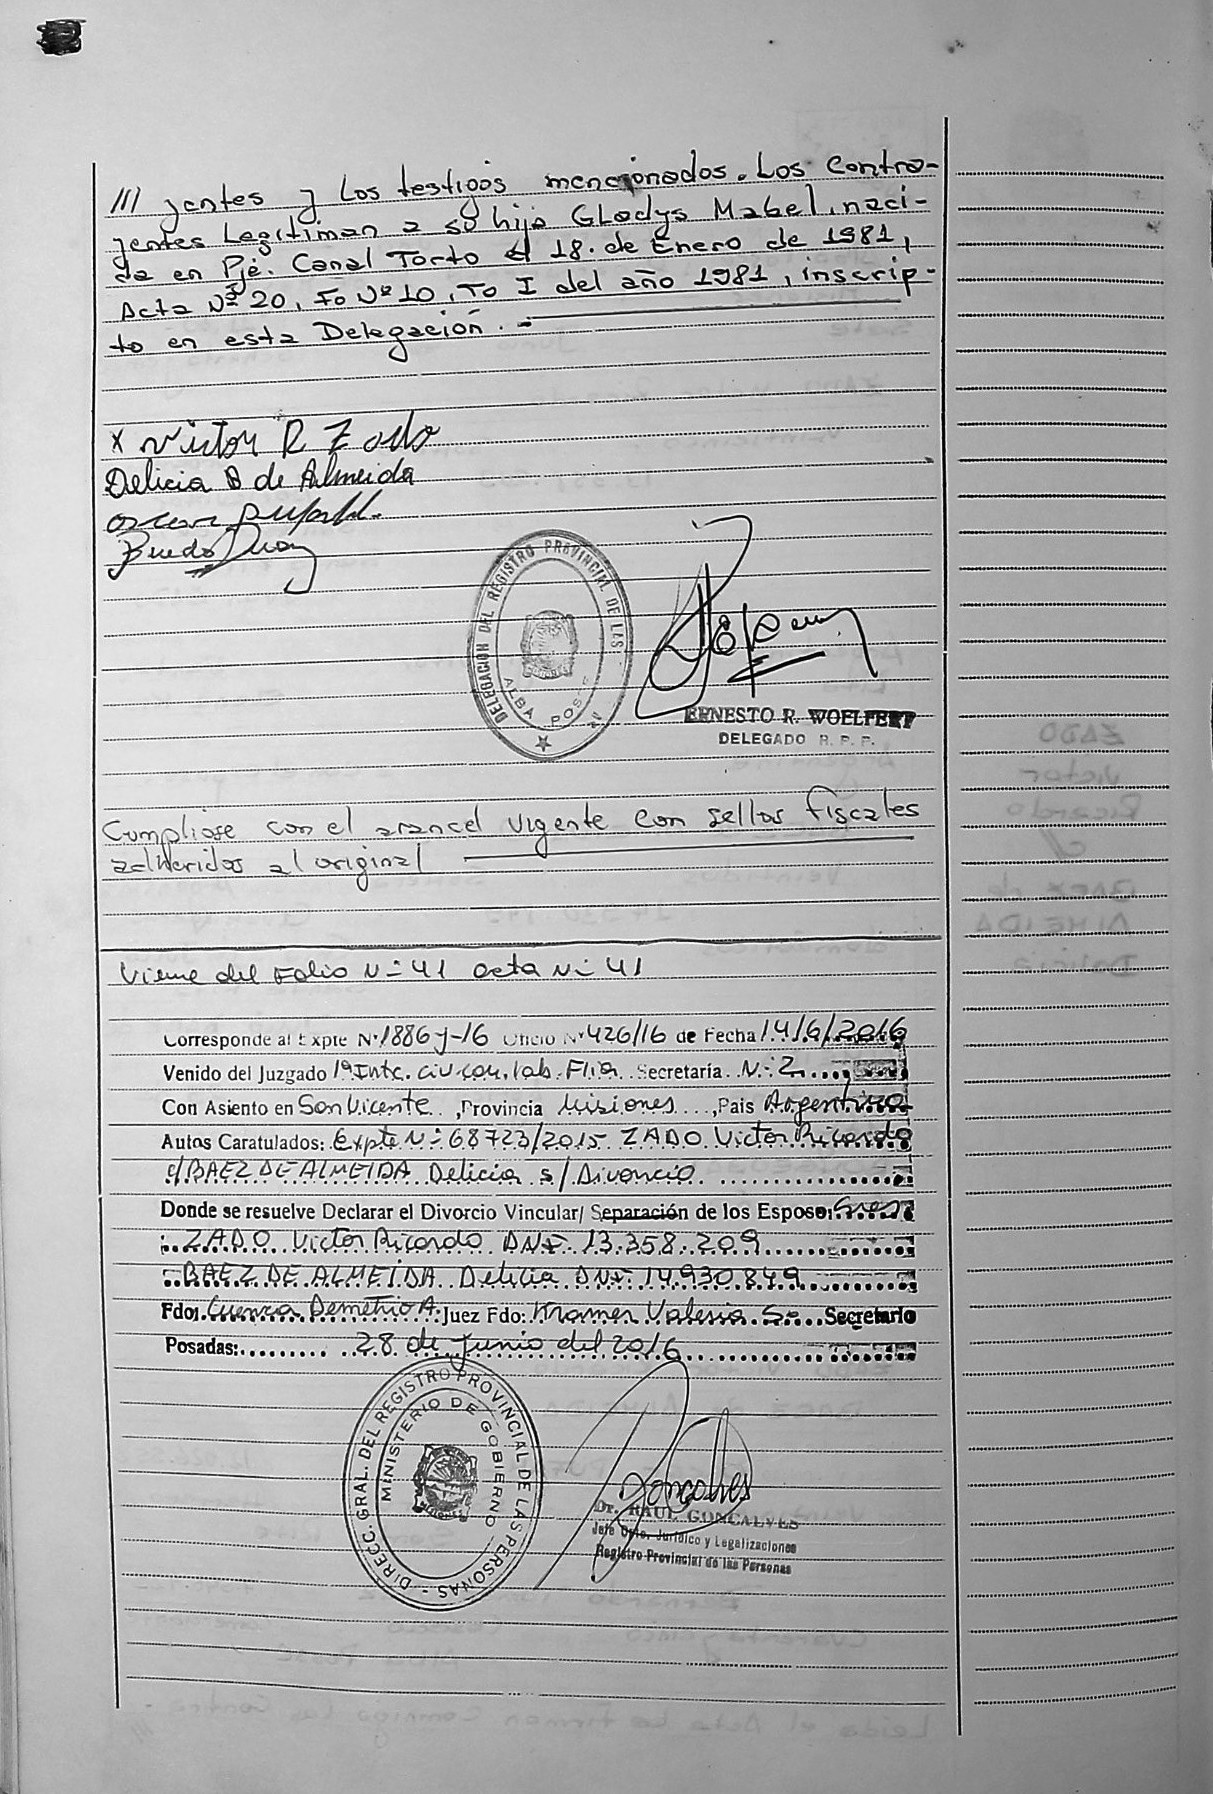 /// yentes y Los testigos mencionados. Los contra-
yentes Legitiman a su hija GLadys Mabel, naci-
da en Pje. Canal Torto el 18. de Enero de 1981,
Acta Nº 20, Fo Nº 10, To I del año 1981, inscrip-
to en esta Delegación. -
x Victor R Zado
Delicia B de Almeida
DELEGACION DEL REGISTRO PROVINCIAL DE LAS
ALBA POSSE
ERNESTO R. WOELFERT
DELEGADO R. P. P.
Cumpliose con el arancel vigente con sellos fiscales
adheridos al original
Viene del Folio Nº 41 acta Nº 41
Corresponde al Expte Nº 1886-y-16 Oficio Nº 426/16 de Fecha 14/6/2016
Venido del Juzgado 1º Intc. civ. com. lab. Flia. Secretaría Nº 2
Con Asiento en San Vicente, Provincia Misiones, País Argentina
Autos Caratulados: Expte Nº 68723/2015 ZADO Victor Ricardo
c/BAEZ DE ALMEIDA Delicia s/ Divorcio
Donde se resuelve Declarar el Divorcio Vincular/ Separación de los Esposos
ZADO Victor Ricardo DNI 13.358.209
BAEZ DE ALMEIDA Delicia DNI 14.930.849
Fdo: Cuenca Demetrio A. Juez Fdo: Kramer Valeria S. Secretario
Posadas: 28 de junio del 2016
DIRECC. GRAL. DEL REGISTRO PROVINCIAL DE LAS PERSONAS -
MINISTERIO DE GOBIERNO
Goncalves
Dr. RAUL GONCALVES
Jefe Dpto. Jurídico y Legalizaciones
Registro Provincial de las Personas